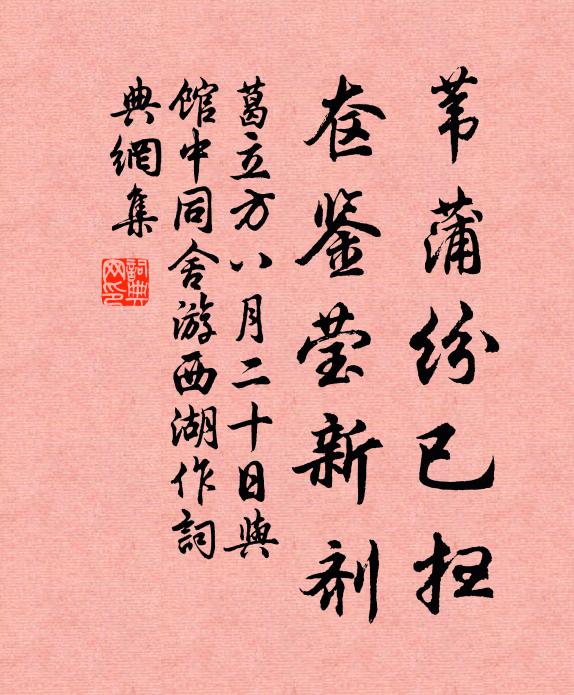 苇蒲纷已扫
奁鉴莹新剂
葛立方八月二十日与
馆中同舍游西湖作词
典网集
词典网印